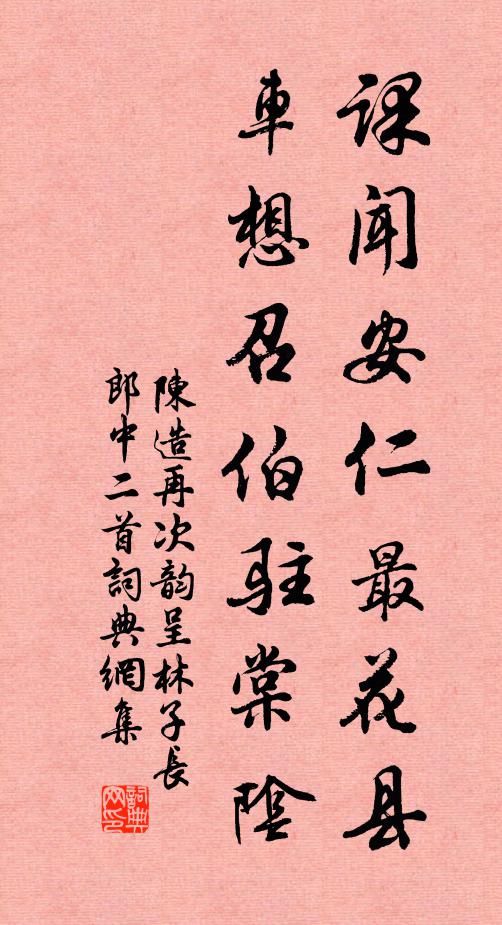 课闻安仁最花县
車想召伯驻棠陰
陳造再次韵呈林子長
郎中二首詞典網集
詞典
网印